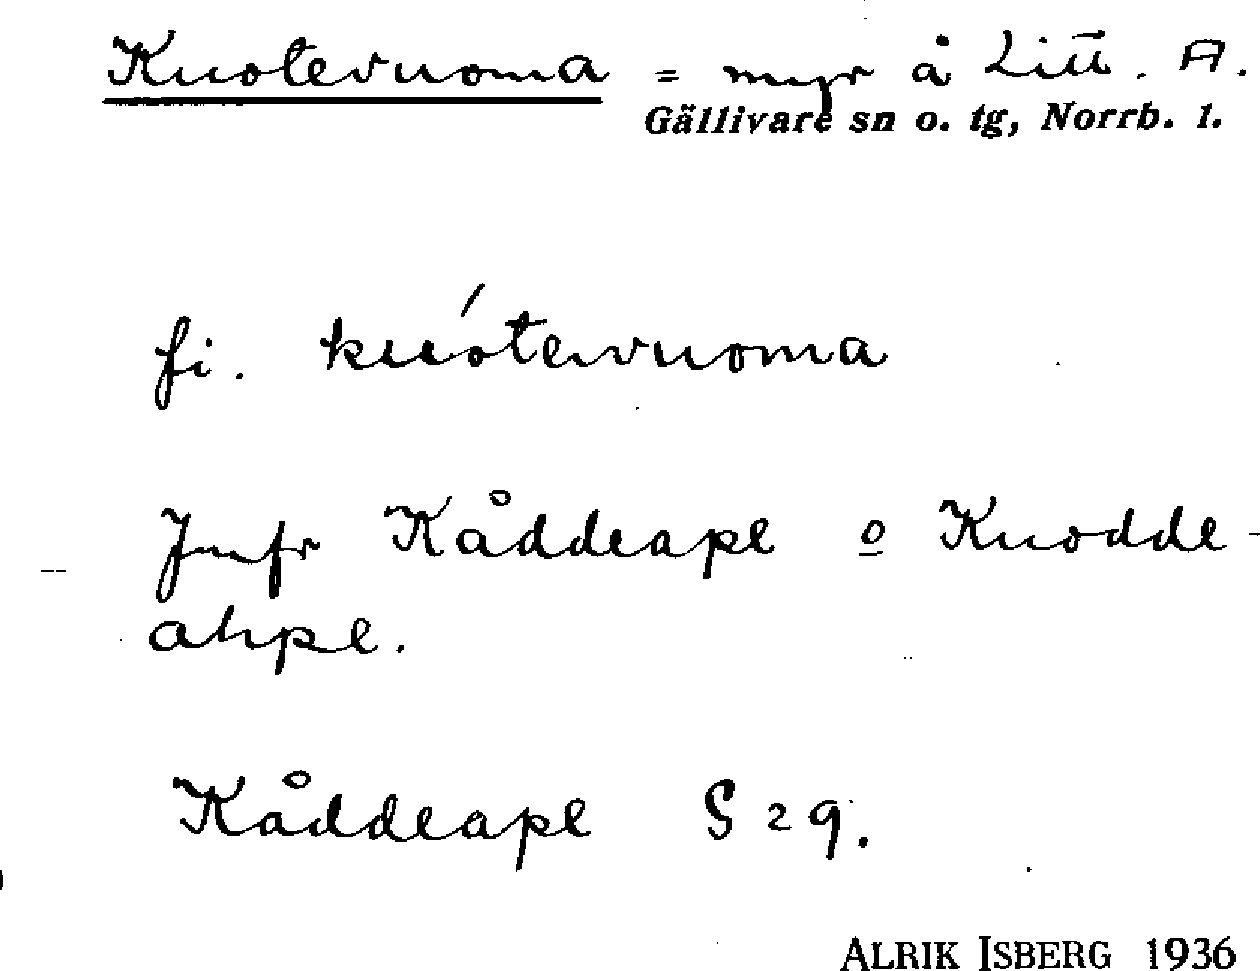 Kuotevuoma = myr å Litt. A.
Gällivare sn o. tg, Norrb. l.
fi. kuótevuoma
Jmfr Kåddeape o Kuodde-
ahpe.
Kåddeape S 29.
ALRIK ISBERG 1936